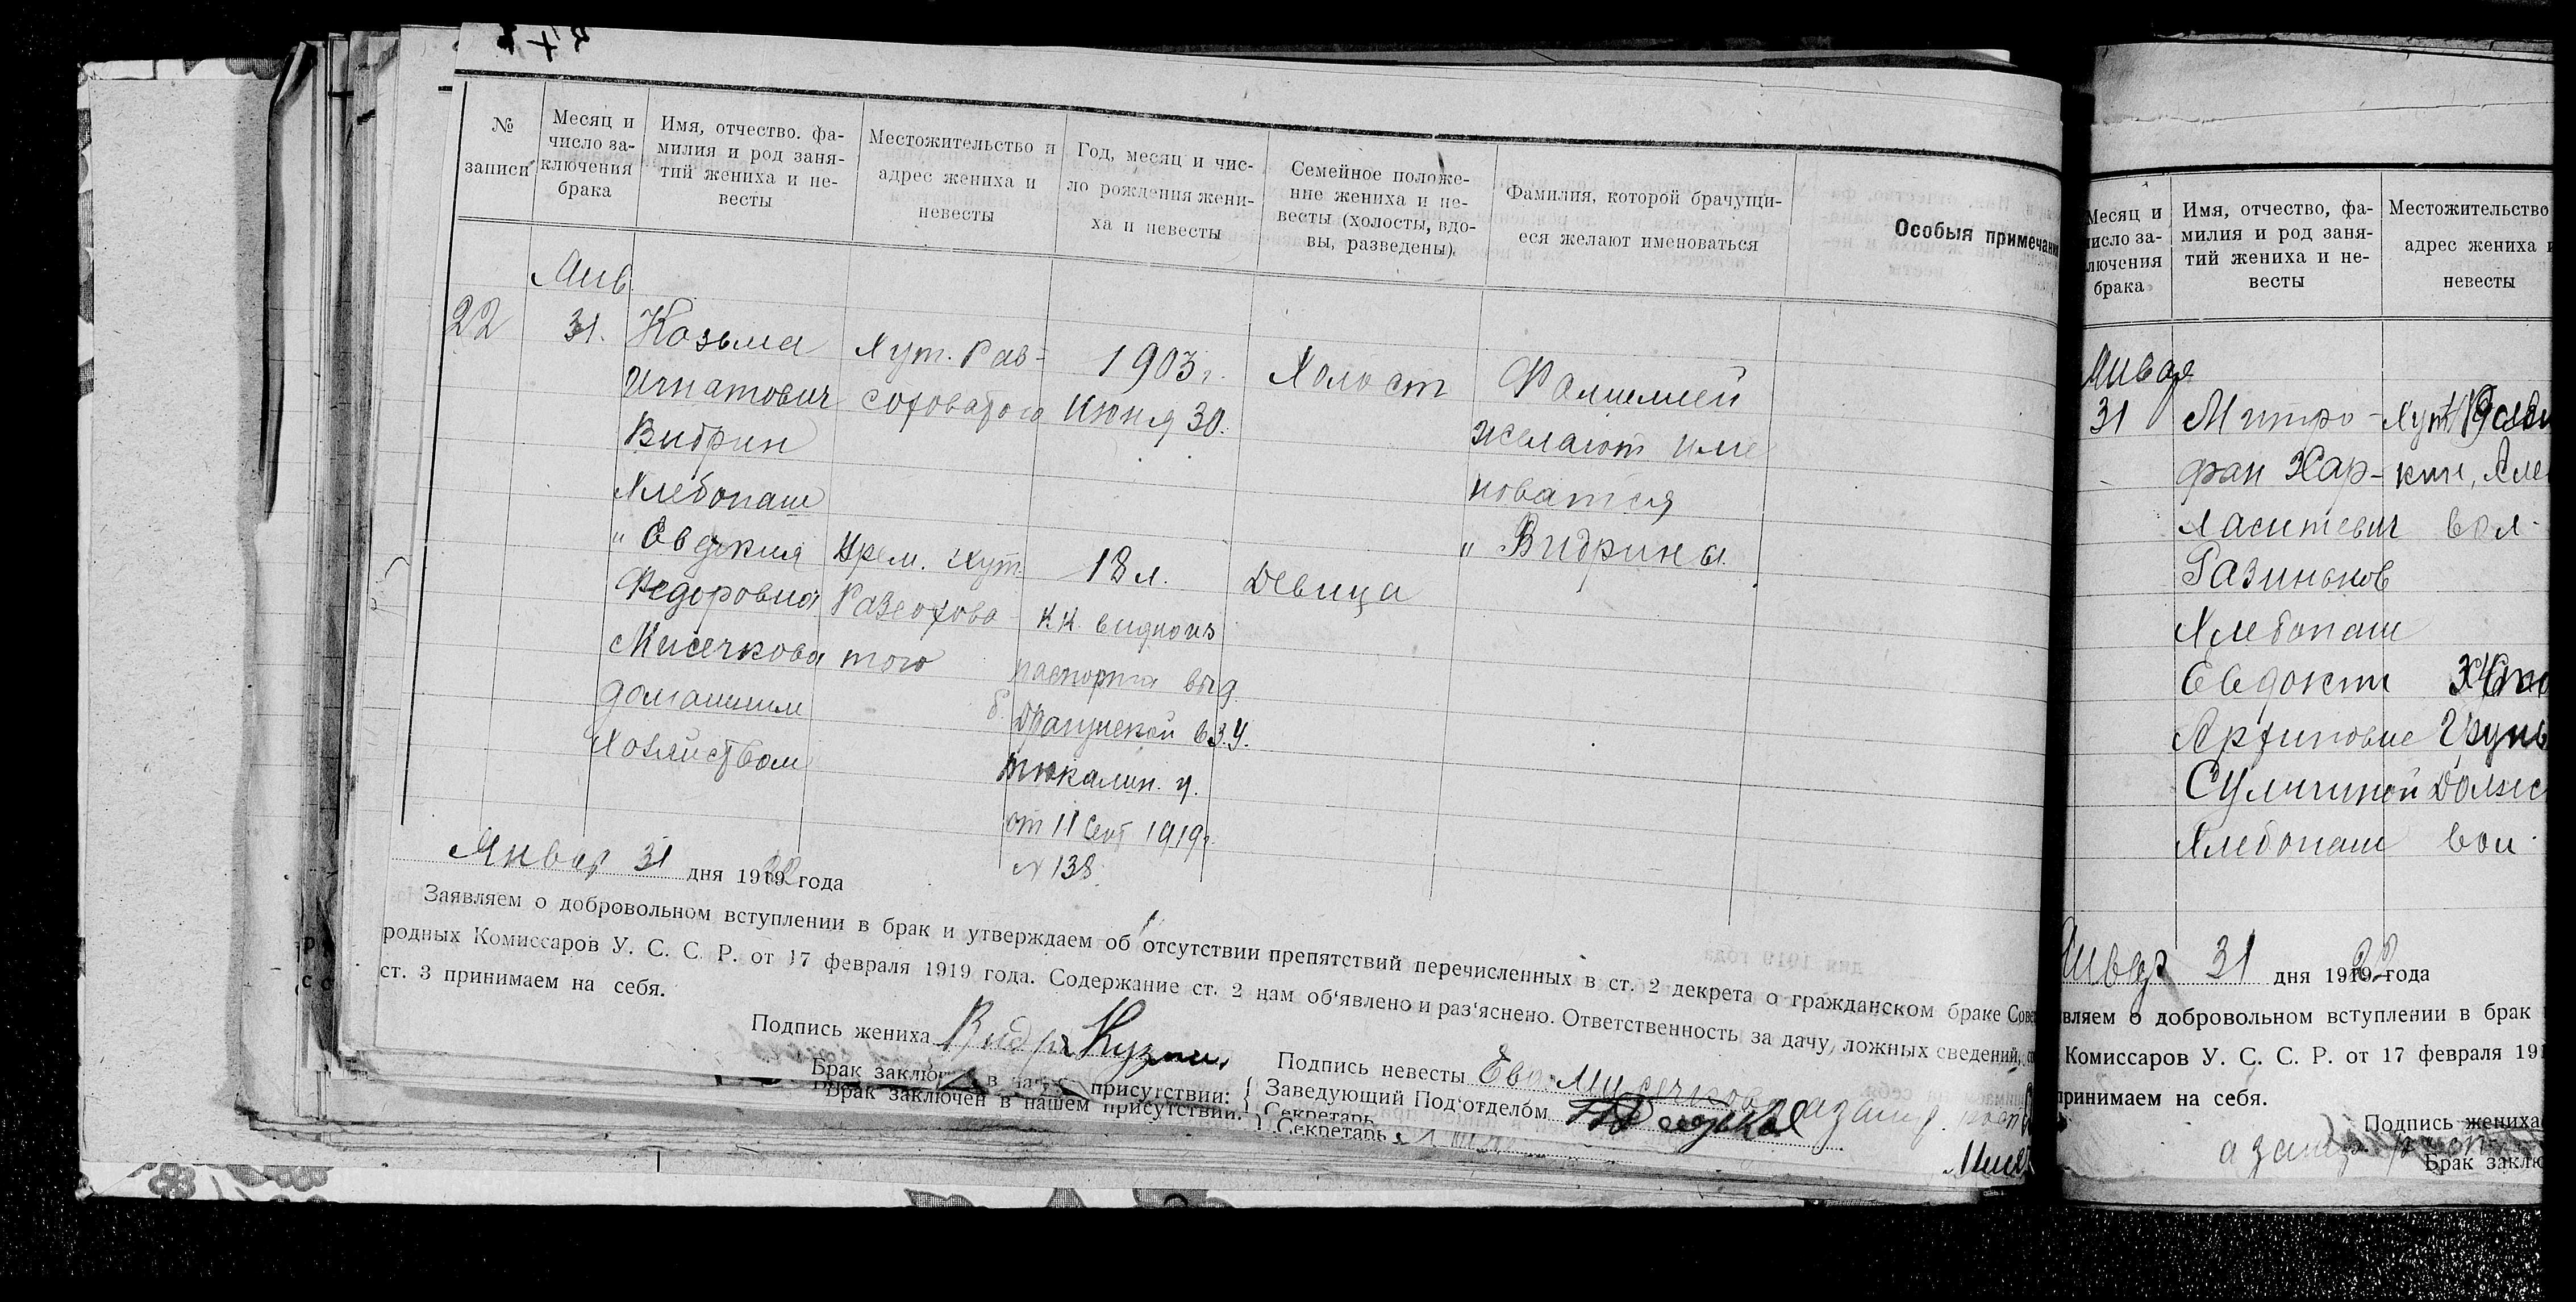 № записи
Месяц и число заключения брака
Имя, отчество. фа-
милия и род заня-
тий жениха и не-
весты
Местожительство и
адрес жениха и
невесты
Год, месяц и чис-
ло рождения жени-
ха и невесты
Семейное положе-
ние жениха и не-
весты (холосты, вдо-
вы, разведены).
Фамилия, которой брачущи-
еся желают именоваться
Особыя примечани
Янв
22
31.
Козьма
Игнатович
Видрин
Хлебопаш
Хут. Раз-
соховатого
1903 г.
Июня 30.
Холост
Фамилией
желают име
новатся
" Видрины
" Евдокия
Федоровна
Мисечкова
домашним
Хозяйством
Врем. хут.
Разсохова
того
18 л.
К.К. видно из
паспорта выд
Драгунской
Тюкалин. у.
от 11 Сент 1919г.
№ 138
Девица
Январ 31 дня 1922 года
Заявляем о добровольном вступлении в брак и утверждаем об отсутствии препятствий перечисленных в ст. 2 декрета о гражданском браке Сове
родных Комиссаров У. С. С. Р. от 17 февраля 1919 года. Содержание ст. 2 нам об‘явлено и раз‘яснено. Ответственность за дачу ложных сведений,
ст. 3 принимаем на себя.
Подпись жениха
Подпись невесты Евд. Мисечкова
Брак заключ в присутствии:
Заведующий Под‘отделом
Секретарь
Брак заключен в нашем присутствии.
Секретарь
Месяц и
число за-
ключения
брака
Имя, отчество, фа-
милия и род заня-
тий жениха и не-
весты
Местожительство
адрес жениха и
невесты
31
Митро-
фан Хар-
Разиньков
Хлебопаш
Хлебопаш
вол.
вол.
31 дня 1922 года
вляем о добровольном вступлении в брак
Комиссаров У. С. С. Р. от 17 февраля 191
принимаем на себя.
Подпись жениха
Брак заклю